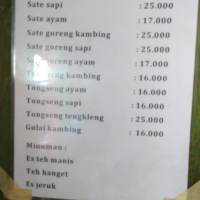 Sate sapi : 25.000
Sate ayam : 17.000
Sate goreng kambing : 25.000
Sate goreng sapi : 25.000
Sate goreng ayam : 17.000
kambing : 16.000
Tongseng ayam : 16.000
Tongseng sapi : 16.000
Tongseng tengkleng : 25.000
Gulai kambing : 16.000
Minuman :
Es teh manis
Teh hanget
Es jeruk